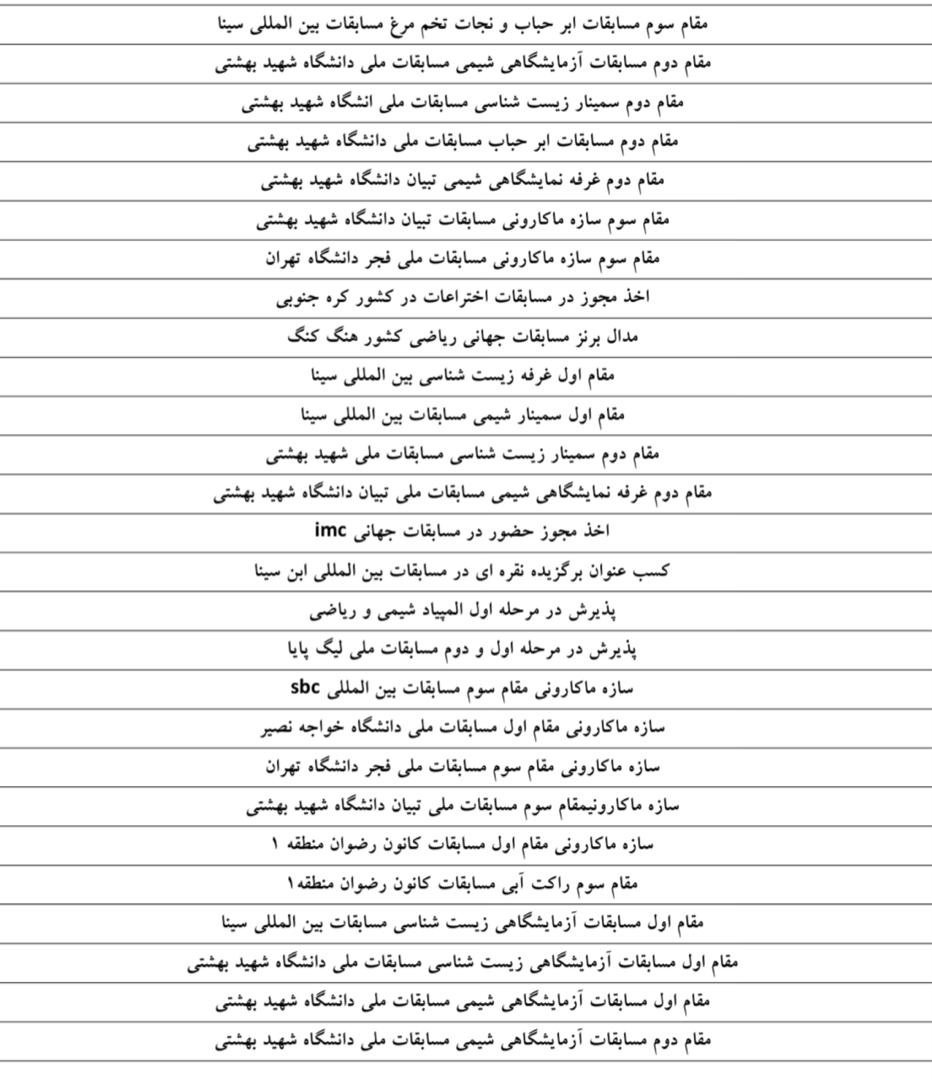 مقام سوم مسابقات ابر حباب و نجات تخم مرغ مسابقات بین المللی سینا
مقام دوم مسابقات آزمایشگاهی شیمی مسابقات ملی دانشگاه شهید بهشتی
مقام دوم سمینار زیست شناسی مسابقات ملی انشگاه شهید بهشتی
مقام دوم مسابقات ابر حباب مسابقات ملی دانشگاه شهید بهشتی
مقام دوم غرفه نمایشگاهی شیمی تبیان دانشگاه شهید بهشتی
مقام سوم سازه ماکارونی مسابقات تبیان دانشگاه شهید بهشتی
مقام سوم سازه ماکارونی مسابقات ملی فجر دانشگاه تهران
اخذ مجوز در مسابقات اختراعات در کشور کره جنوبی
مدال برنز مسابقات جهانی ریاضی کشور هنگ کنگ
مقام اول غرفه زیست شناسی بین المللی سینا
مقام اول سمینار شیمی مسابقات بین المللی سینا
مقام دوم سمینار زیست شناسی مسابقات ملی شهید بهشتی
مقام دوم غرفه نمایشگاهی شیمی مسابقات ملی تبیان دانشگاه شهید بهشتی
اخذ مجوز حضور در مسابقات جهانی imc
کسب عنوان برگزیده نقره ای در مسابقات بین المللی ابن سینا
پذیرش در مرحله اول المپیاد شیمی و ریاضی
پذیرش در مرحله اول و دوم مسابقات ملی لیگ پایا
سازه ماکارونی مقام سوم مسابقات بین المللی sbc
سازه ماکارونی مقام اول مسابقات ملی دانشگاه خواجه نصیر
سازه ماکارونی مقام سوم مسابقات ملی فجر دانشگاه تهران
سازه ماکارونیمقام سوم مسابقات ملی تبیان دانشگاه شهید بهشتی
سازه ماکارونی مقام اول مسابقات کانون رضوان منطقه ۱
مقام سوم راکت آبی مسابقات کانون رضوان منطقه۱
مقام اول مسابقات آزمایشگاهی زیست شناسی مسابقات بین المللی سینا
مقام اول مسابقات آزمایشگاهی زیست شناسی مسابقات ملی دانشگاه شهید بهشتی
مقام اول مسابقات آزمایشگاهی شیمی مسابقات ملی دانشگاه شهید بهشتی
مقام دوم مسابقات آزمایشگاهی شیمی مسابقات ملی دانشگاه شهید بهشتی